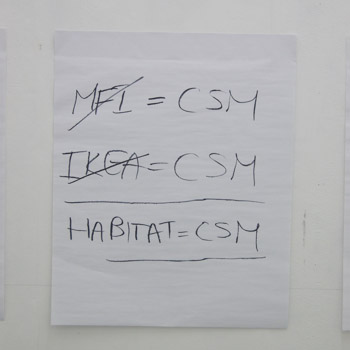 MFI = CSM
IKEA = CSM
HABITAT = CSM